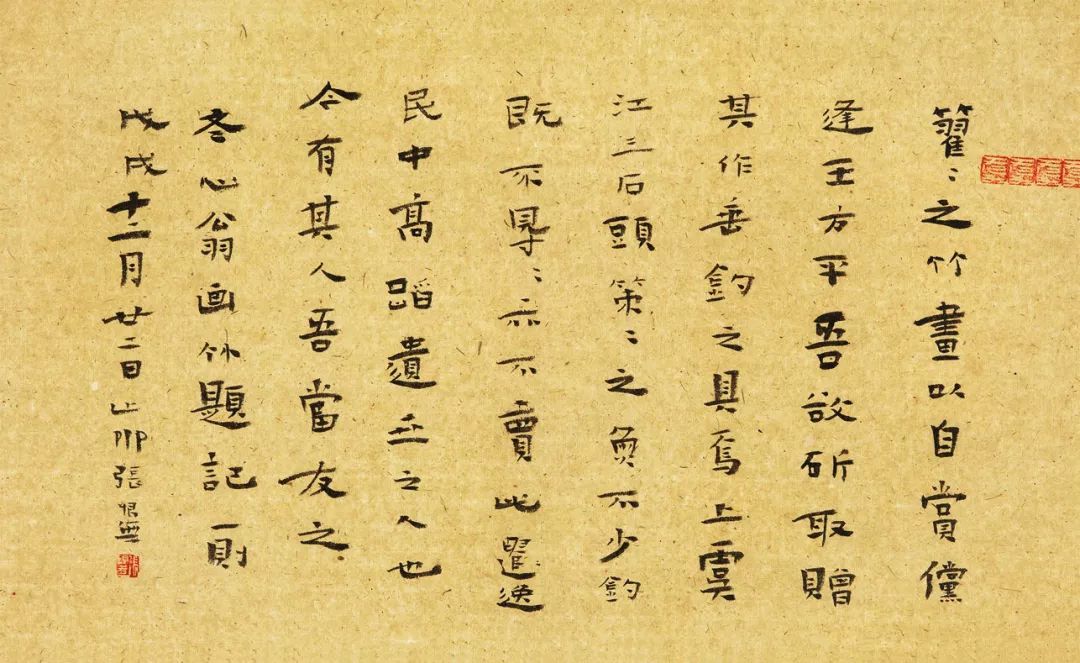 籊〻之竹畫以自賞儻
逢王方平吾欲斫取贈
其作垂釣之具焉上虞
江三石頭策〻之魚不少釣
既不㝵〻亦不賣此逸
民中高蹈遺世之人也
今有其人吾當友之
冬心翁画竹題記一則
戊戌十二月廿二日張恨無